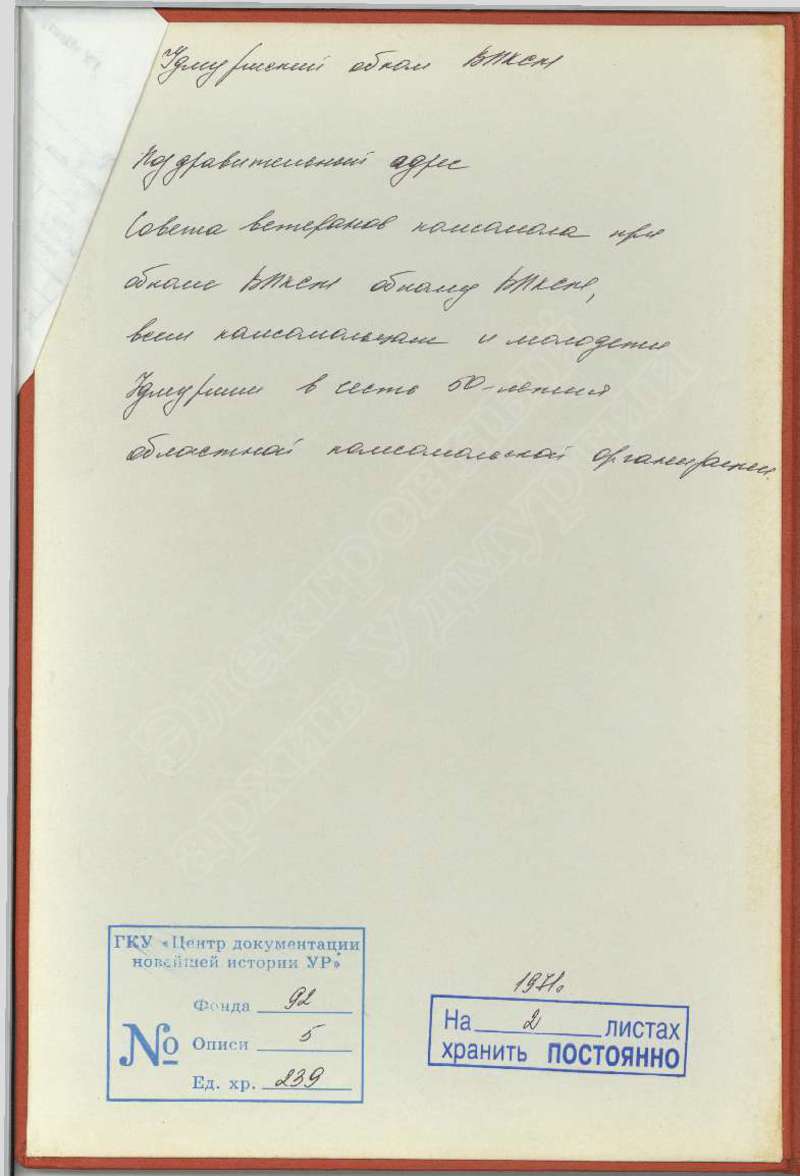 Удмуртский обком ВЛКСМ
Поздравительный адрес
Совета ветеранов комсомола при
обкоме ВЛКСМ обкому ВЛКСМ,
всем комсомольцам и молодежи
Удмуртии в честь 50-летия
областной комсомольской организации.
Электронный
архив Удмуртии
ГКУ «Центр документации
новейшей истории УР»
Фонда 92
№ Описи 5
Ед. хр. 239
1971г.
На 2 листах
хранить ПОСТОЯННО